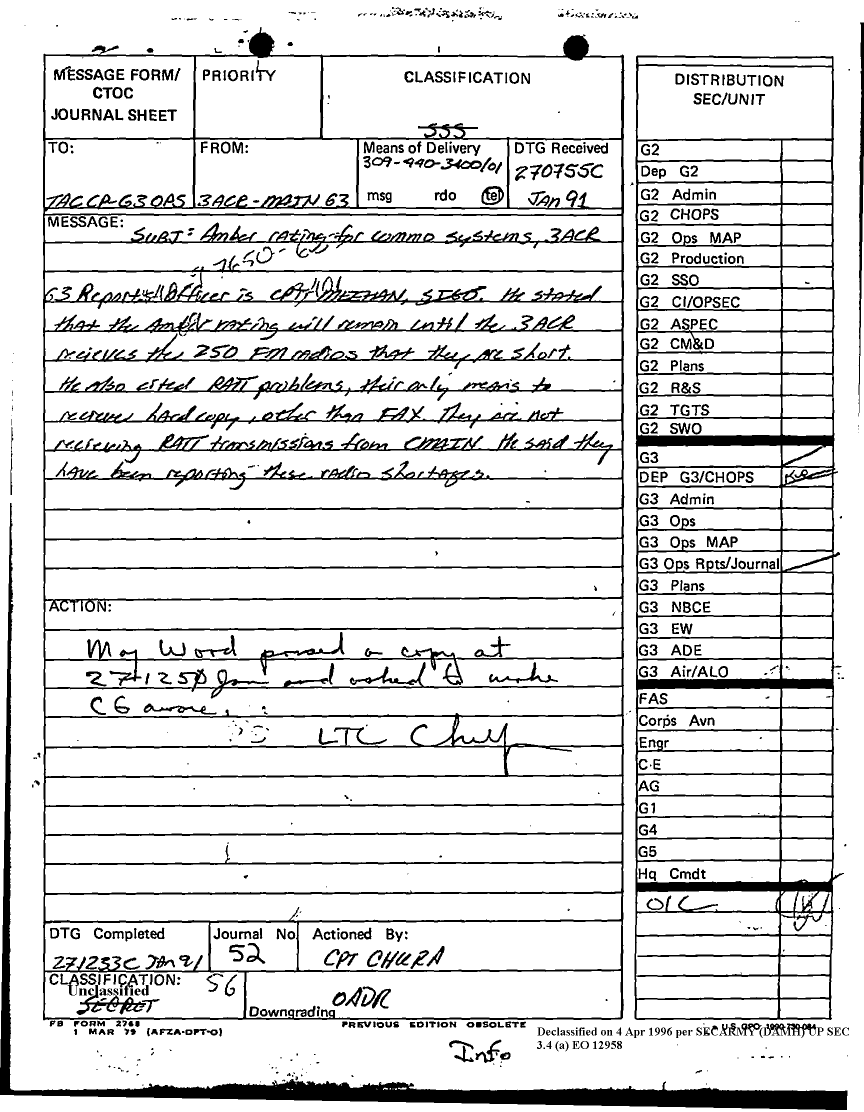 MESSAGE FORM/
CTOC
JOURNAL SHEET
PRIORITY
CLASSIFICATION
SSS
DISTRIBUTION
SEC/UNIT
TO:
TAC CP-G3 OPS
FROM:
3ACR-MAIN G3
Means of Delivery
309-440-3400/01
msg rdo tel
DTG Received
270755C
JAN 91
MESSAGE:
SUBJ: Amber rating for commo systems, 3ACR
G3 Reports Officer is CPT MEEHAN, SIGO. He stated
that the Amber rating will remain until the 3ACR
recieves the 250 FM radios that they are short.
He also cited RATT problems, their only means to
recieve hard copy, other than FAX. They are not
recieving RATT transmissions from CMAIN. He said they
have been reporting these radio shortages.
ACTION:
Maj Word passed a copy at
271250 Jan and asked to make
CG aware.
LTC
DTG Completed
271233C JAN 91
Journal No
52
Actioned By:
CPT CHURA
CLASSIFICATION:
Unclassified
SECRET
56
Downgrading
OADR
FB FORM 2768
1 MAR 79 (AFZA-DPT-O)
PREVIOUS EDITION OBSOLETE
Declassified on 4 Apr 1996 per SECARMY (DAMH) UP SEC
3.4 (a) EO 12958
Info
G2
Dep G2
G2 Admin
G2 CHOPS
G2 Ops MAP
G2 Production
G2 SSO
G2 CI/OPSEC
G2 ASPEC
G2 CM&D
G2 Plans
G2 R&S
G2 TGTS
G2 SWO
G3
DEP G3/CHOPS
G3 Admin
G3 Ops
G3 Ops MAP
G3 Ops Rpts/Journal
G3 Plans
G3 NBCE
G3 EW
G3 ADE
G3 Air/ALO
FAS
Corps Avn
Engr
C-E
AG
G1
G4
G5
Hq Cmdt
OIC